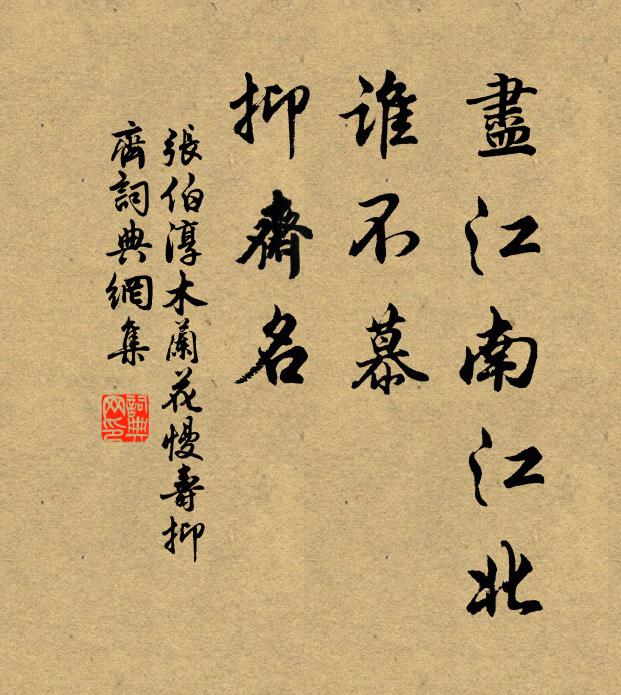 盡江南江北
誰不慕
抑齋名
張伯淳木蘭花慢壽抑
齊詞典網集
詞典網印